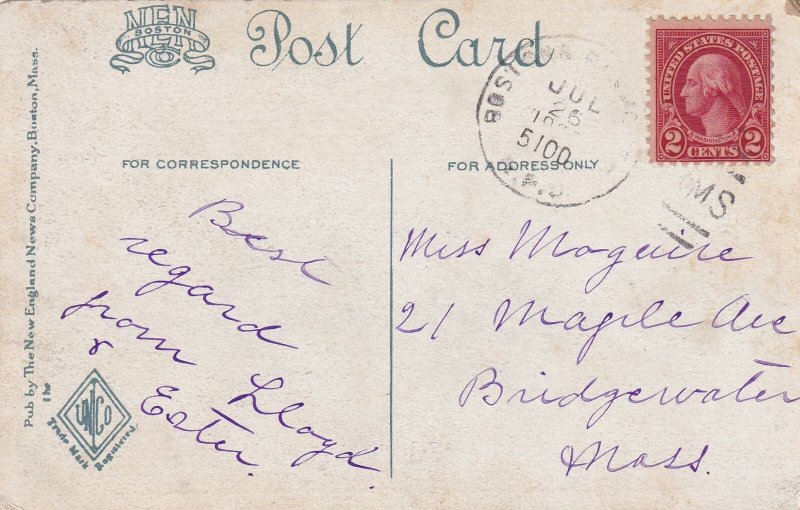 NEN
BOSTON
Co
Post Card
BOSTON
JUL
26
5100
R.M.S.
UNITED STATES POSTAGE
WASHINGTON
2 CENTS 2
RMS
FOR CORRESPONDENCE
FOR ADDRESS ONLY
Best
regard
from Lloyd.
& Ester.
Miss Maguire
21 Maple Ave
Bridgewater
Mass.
Pub by The New England News Company, Boston, Mass.
The
UNCO
Trade Mark
Registered